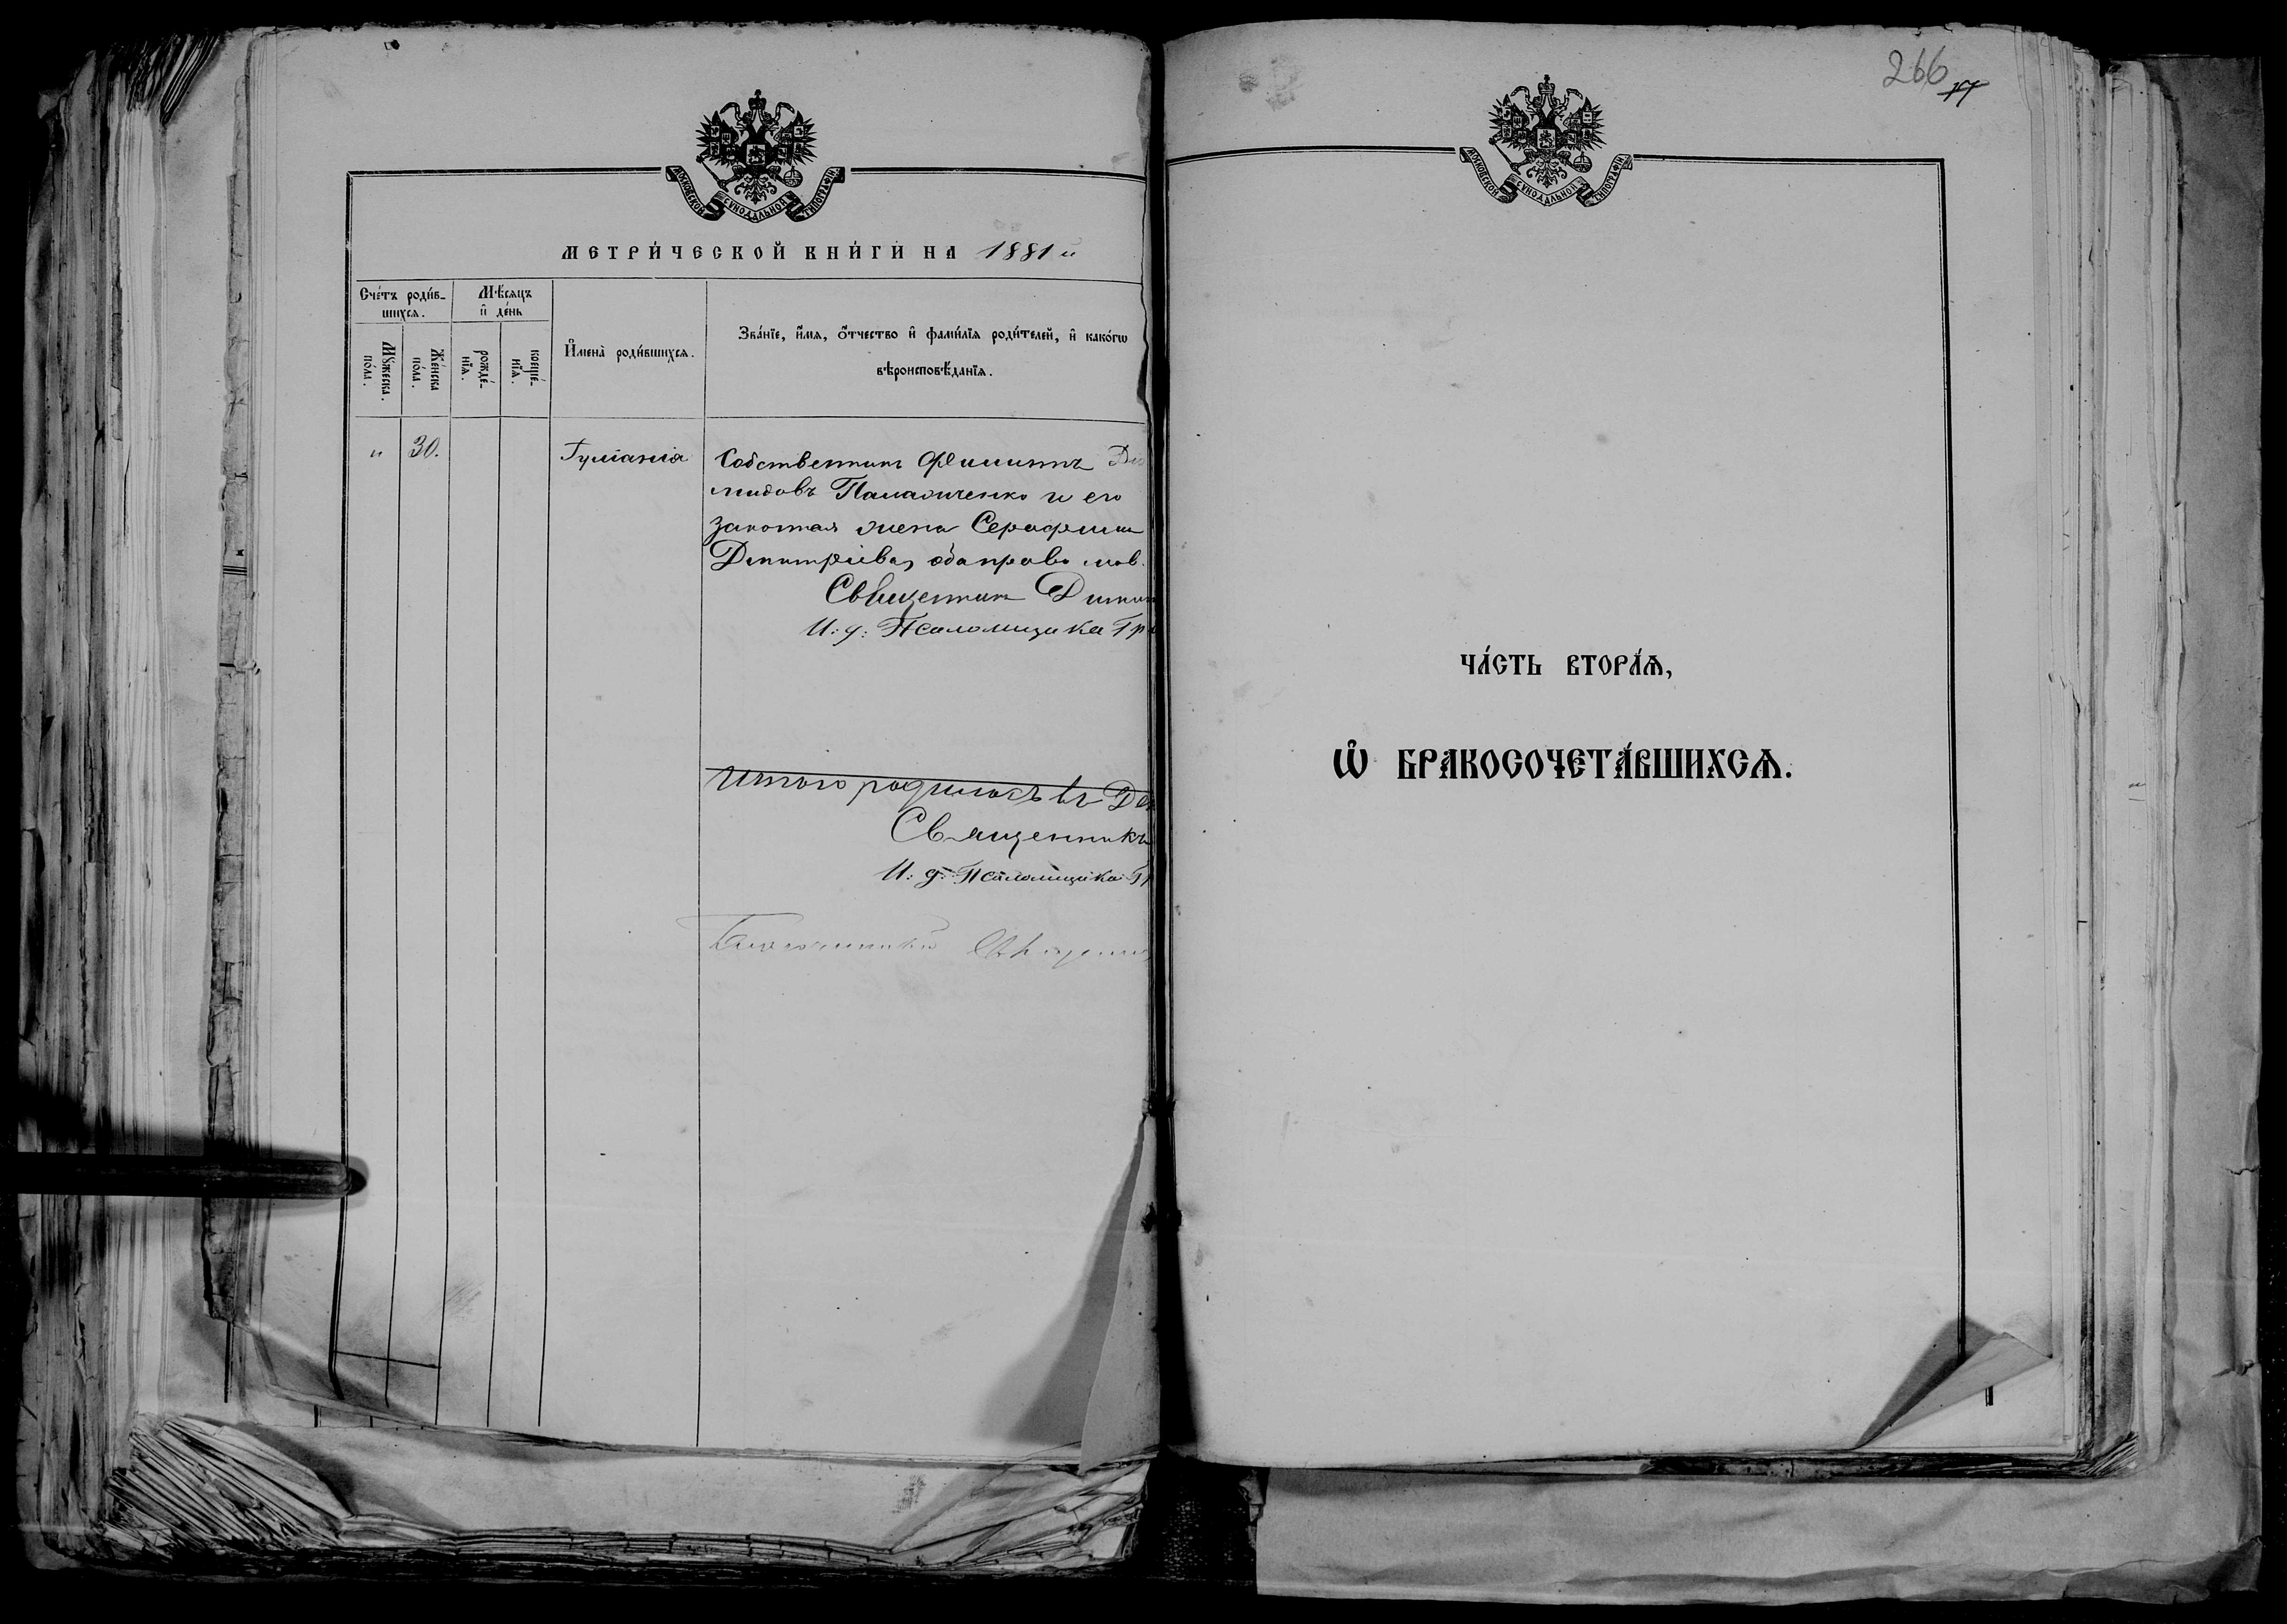 МОСКОВСКОЙ СѴНОДАЛЬНОЙ ТИПОГРАФІИ
МЕТРИ́ЧЕСКОЙ КНИ́ГИ НА 1881 й
Сче́тъ роди́в-
шихсѧ.
Мѣ́сѧцъ
и҆ де́нь
Мꙋ́жеска
по́ла.
Же́нска
по́ла.
рожде́-
нїѧ.
креще́-
нїѧ.
И҆мена̀ роди́вшихсѧ.
Зва́нїе, и҆́мѧ, ѻ҆́тчество и҆ фами́лїѧ роди́телей, и҆ како́гѡ
вѣроисповѣ́данїѧ.
" 30. Іуліанія Собственникъ Филиппъ Діо
мидовъ и его
законная жена Серафима
Дмитріева, оба православ.
Священникъ Димит
И: д: Псаломщика Гр
Итого родилось въ Дек
Священникъ
И: д: Псаломщика Гр
266
17
МОСКОВСКОЙ СѴНОДАЛЬНОЙ ТИПОГРАФІИ
ЧА́СТЬ ВТОРА́Ѧ,
Ѡ҆ БРАКОСОЧЕТА́ВШИХСѦ.